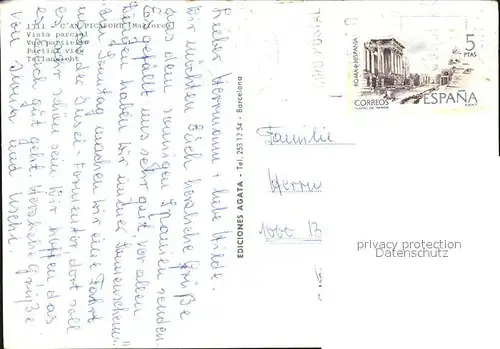 1711 - C'AN PICAFORT (Mallorca)
Vista parcial
Vue partielle
Partial view
Teilansicht
Lieber Hermann + liebe Hilde.
Wir möchten Euch herzliche Grüße
aus dem sonnigen Spanien senden.
Es gefällt uns sehr gut, vor allen
Dingen haben wir immer Sonnenschein.
Am Sonntag machen wir eine Fahrt
nach der Insel - Formentor dort soll
es sehr schön sein. Wir hoffen das
es Euch gut geht. Herzliche Grüße
von und Uschi.
EDICIONES AGATA - Tel. 253 17 54 - Barcelona
ROMA+HISPANIA
5
PTAS
CORREOS
ESPAÑA
TEATRO DE MERIDA
F.N.M.T.
Familie
Herrn
1000 B
privacy protection
Datenschutz